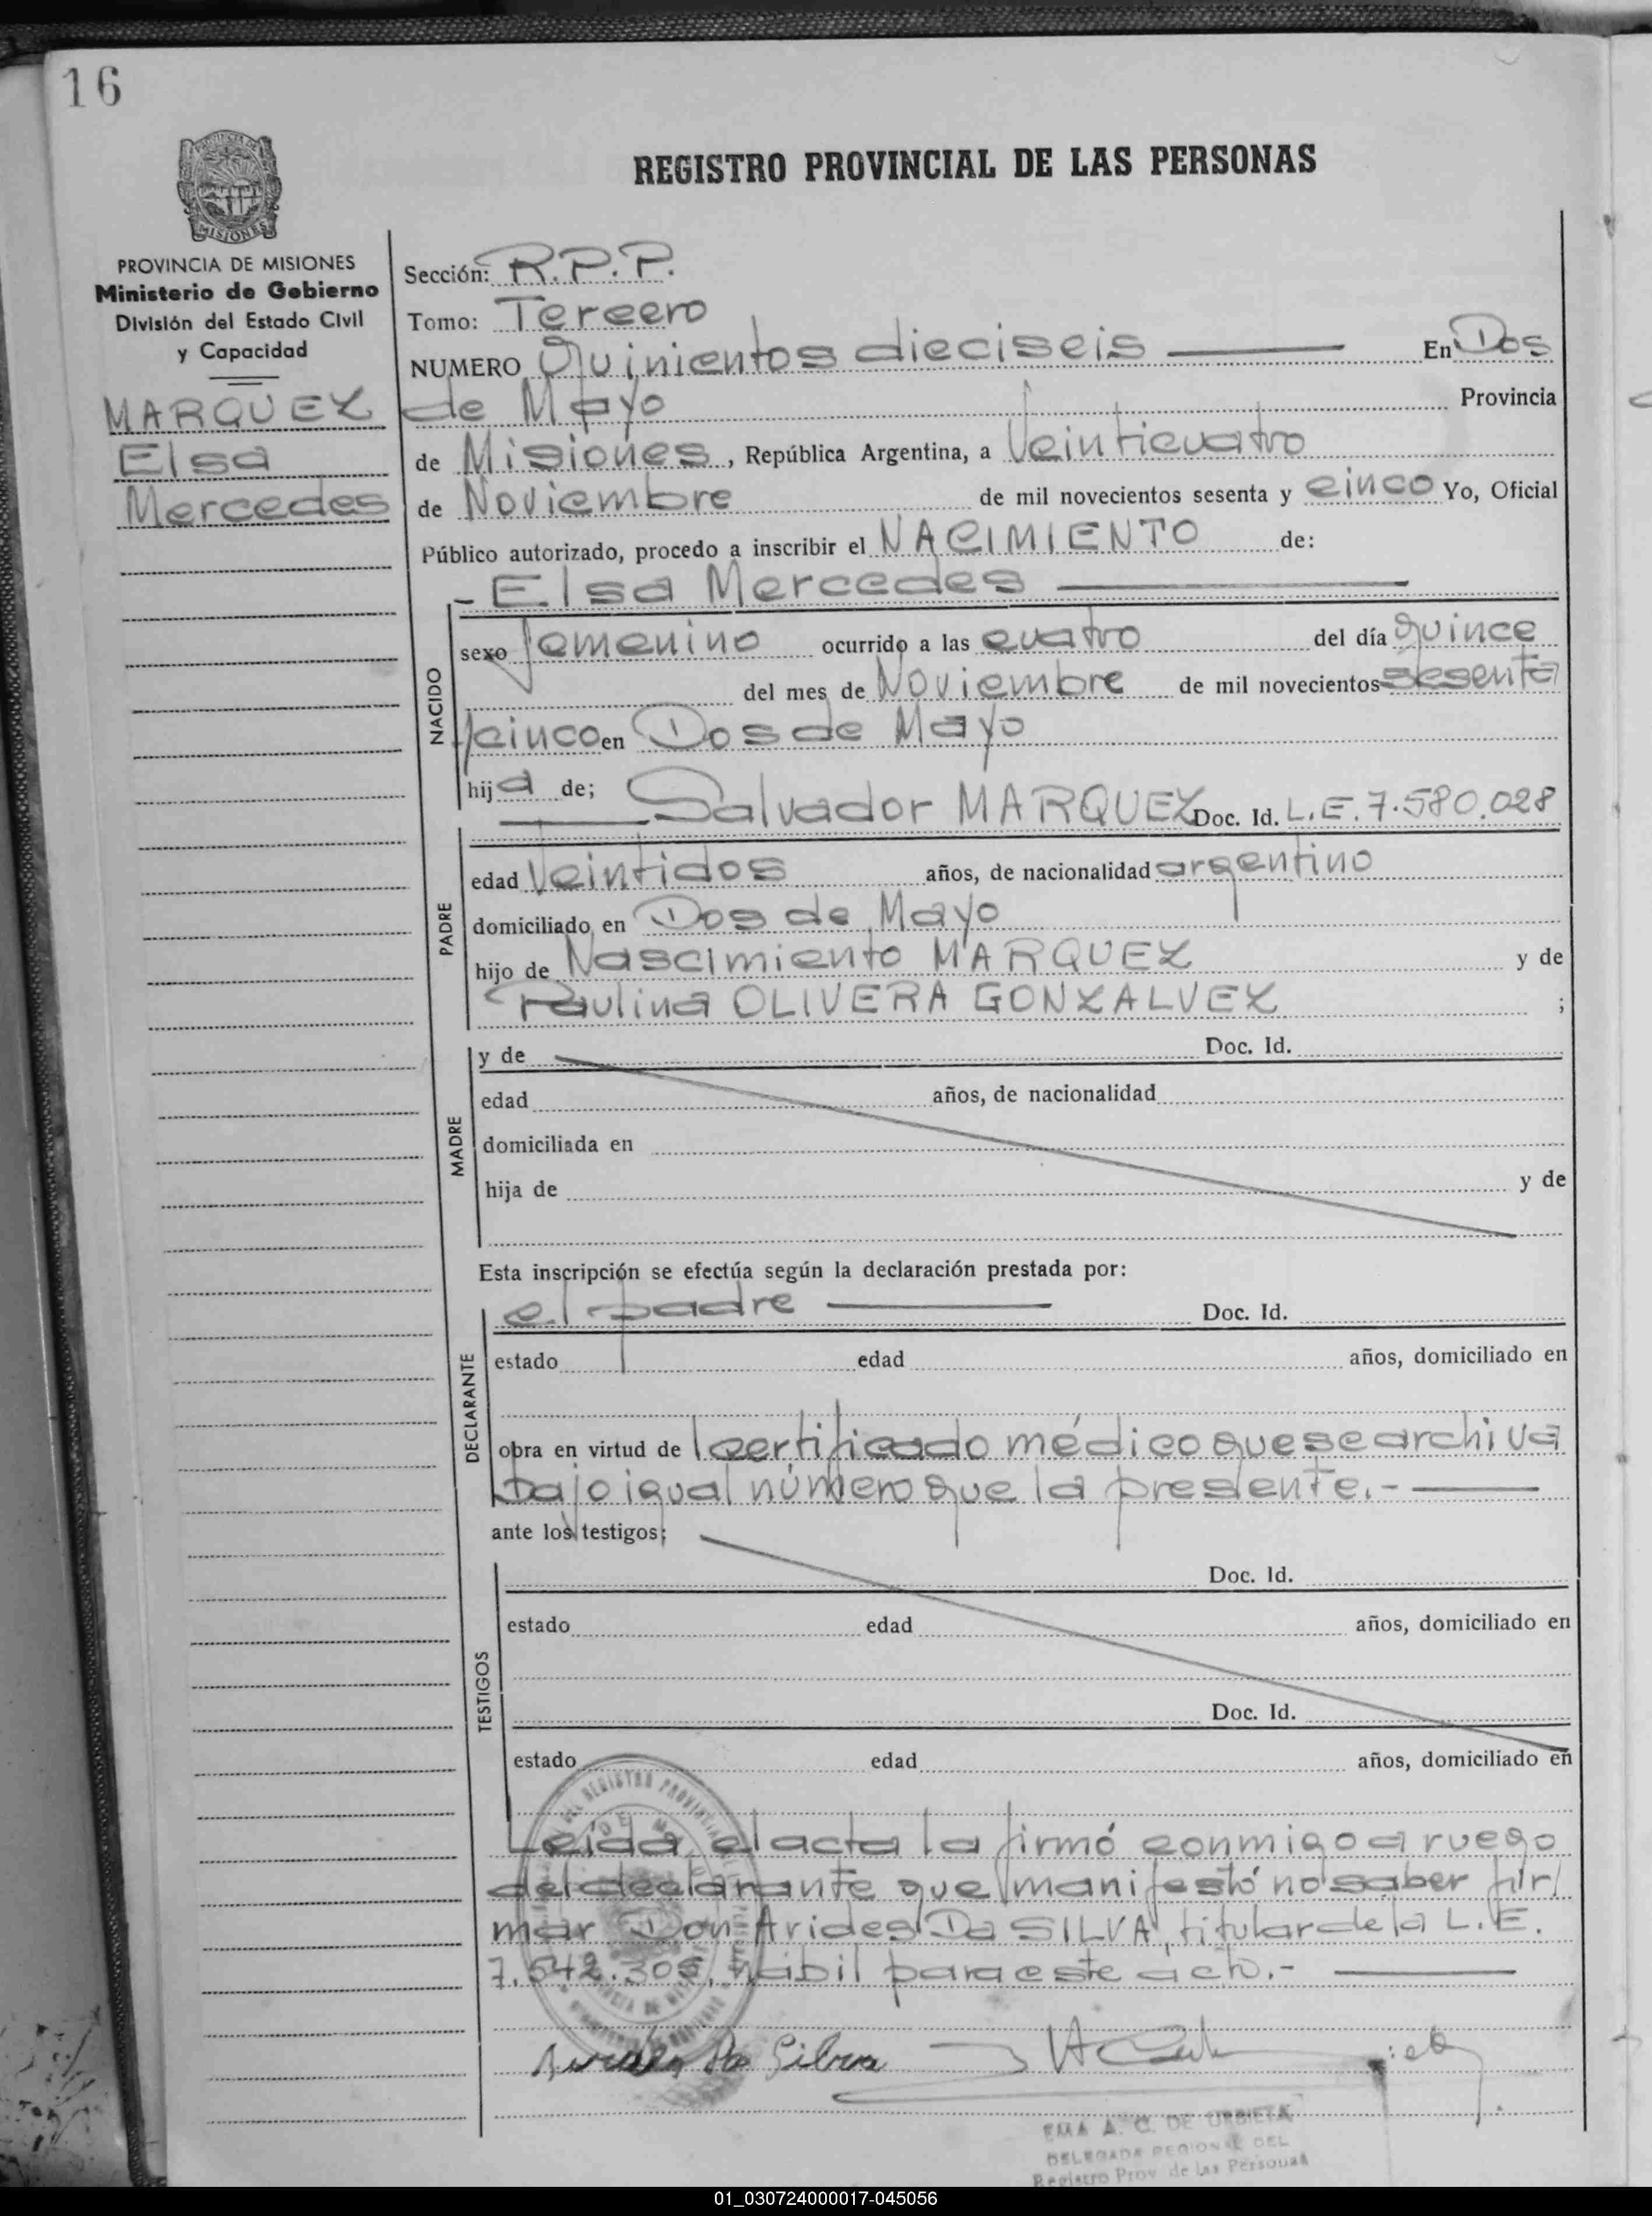 16
PROVINCIA DE MISIONES
Ministerio de Gobierno
División del Estado Civil
y Capacidad
MARQUEZ
Elsa
Mercedes
REGISTRO PROVINCIAL DE LAS PERSONAS
Sección: R.P.P.
Tomo: Tercero
NUMERO Quinientos dieciseis En Dos
de Mayo Provincia
de Misiones, República Argentina, a Veinticuatro
de Noviembre de mil novecientos sesenta y cinco Yo, Oficial
Público autorizado, procedo a inscribir el NACIMIENTO de:
- Elsa Mercedes
NACIDO
sexo femenino ocurrido a las cuatro del día quince
del mes de Noviembre de mil novecientos sesenta
y cinco en Dos de Mayo
hija de; Salvador MARQUEZ Doc. Id. L.E. 7.580.028
PADRE
edad Veintidos años, de nacionalidad argentino
domiciliado en Dos de Mayo
hijo de Nascimiento MARQUEZ y de
Paulina OLIVERA GONZALVEZ ;
MADRE
y de Doc. Id.
edad años, de nacionalidad
domiciliada en
hija de y de
Esta inscripción se efectúa según la declaración prestada por:
DECLARANTE
el padre Doc. Id.
estado edad años, domiciliado en
obra en virtud de certificado médico que se archiva
bajo igual número que la presente.-
ante los testigos;
TESTIGOS
Doc. Id.
estado edad años, domiciliado en
Doc. Id.
estado edad años, domiciliado en
Leída el acta la firmó conmigo a ruego
del declarante que manifestó no saber fir
mar Don Arides Da SILVA, titular de la L.E.
7.542.305, hábil para este acto.-
Da Silva
EMA A. C. DE URBIETA
DELEGADA REGIONAL DEL
Registro Prov. de las Personas
01_030724000017-045056